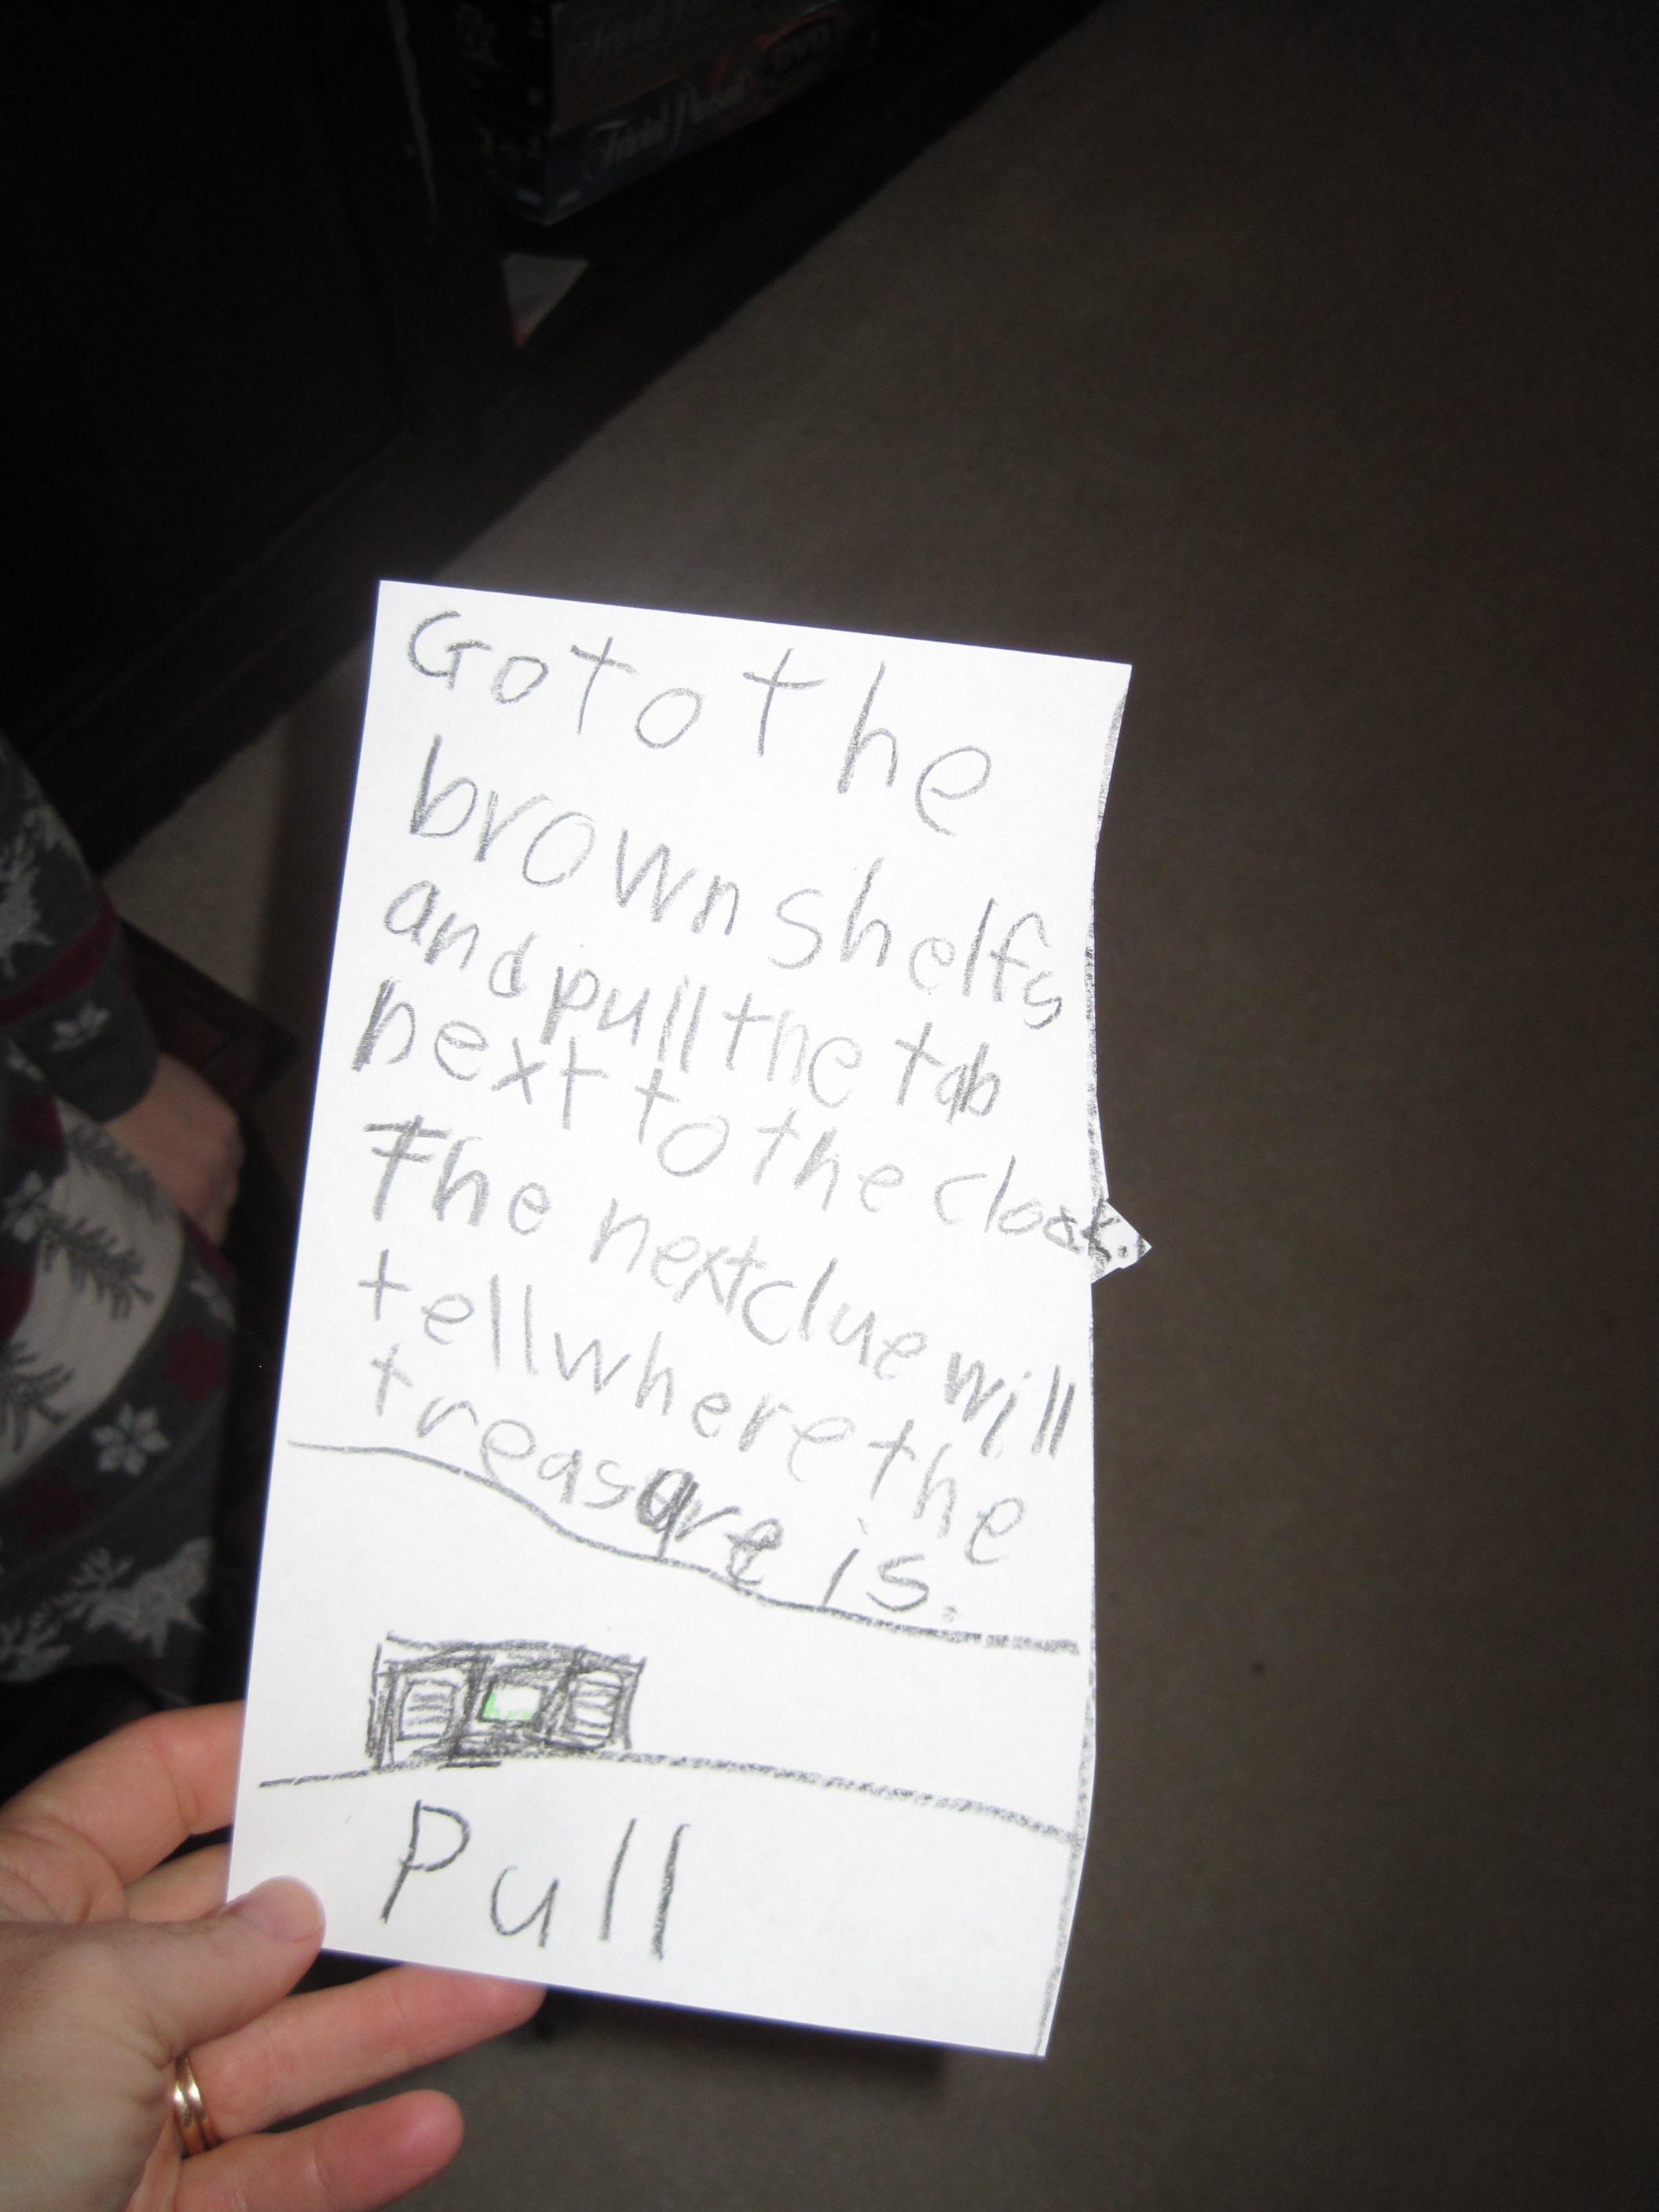 Trivial Pursuit
DVD
Go to the
brown shelfs
and pull the tab
next to the cloak.
The next clue will
tell where the
treasure is.
Pull